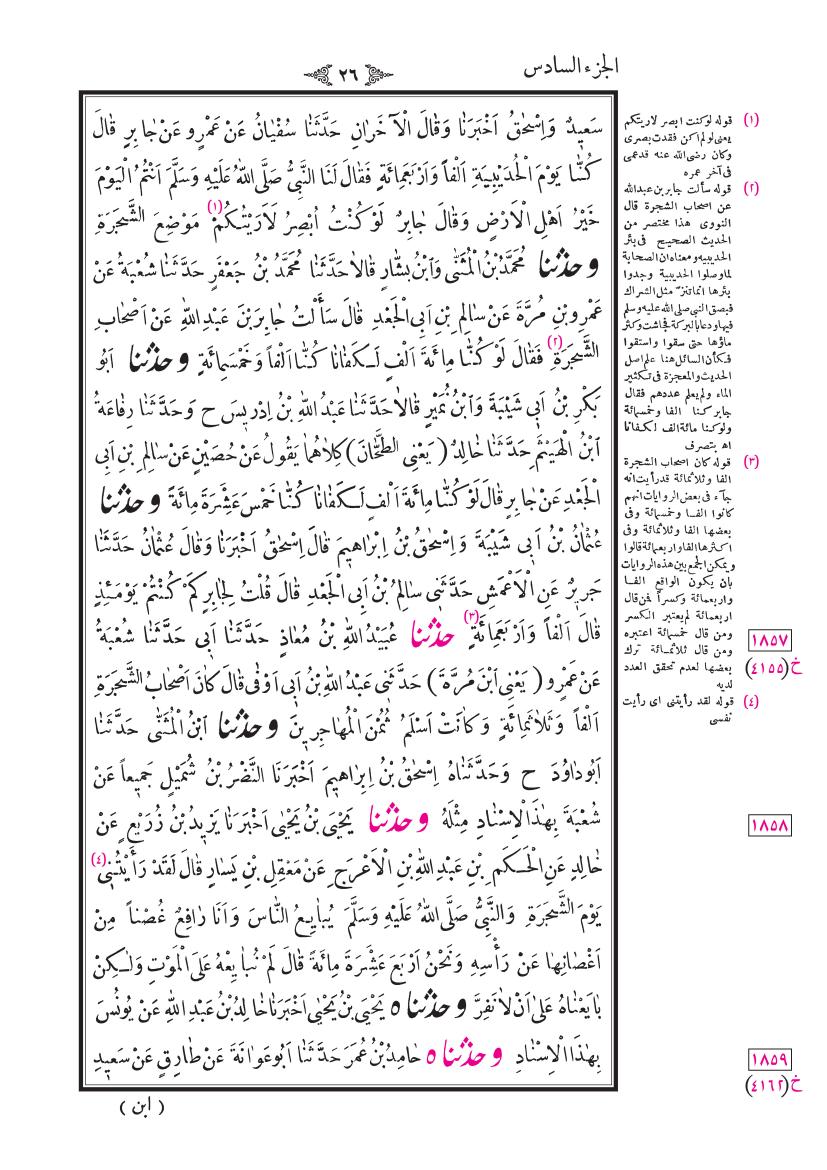 الجزء السادس
٢٦
سَعِيدٌ وَاِسْحٰقُ اَخْبَرَنَا وَقَالَ الْآخَرَانِ حَدَّثَنَا سُفْيَانُ عَنْ عَمْرٍو عَنْ جَابِرٍ قَالَ
كُنَّا يَوْمَ الْحُدَيْبِيَةِ اَلْفاً وَاَرْبَعَمِائَةٍ فَقَالَ لَنَا النَّبِىُّ صَلَّى اللهُ عَلَيْهِ وَسَلَّمَ اَنْتُمُ الْيَوْمَ
خَيْرُ اَهْلِ الْاَرْضِ وَقَالَ جَابِرٌ لَوْ كُنْتُ اُبْصِرُ لَاَرَيْتُكُمْ (١) مَوْضِعَ الشَّجَرَةِ
وحدثنا مُحَمَّدُ بْنُ الْمُثَنّٰى وَابْنُ بَشَّارٍ قَالَا حَدَّثَنَا مُحَمَّدُ بْنُ جَعْفَرٍ حَدَّثَنَا شُعْبَةُ عَنْ
عَمْرِو بْنِ مُرَّةَ عَنْ سَالِمِ بْنِ اَبِى الْجَعْدِ قَالَ سَأَلْتُ جَابِرَ بْنَ عَبْدِ اللهِ عَنْ اَصْحَابِ
الشَّجَرَةِ (٢) فَقَالَ لَوْ كُنَّا مِائَةَ اَلْفٍ لَكَفَانَا كُنَّا اَلْفاً وَخَمْسَمِائَةٍ وحدثنا اَبُو
بَكْرِ بْنُ اَبِى شَيْبَةَ وَابْنُ نُمَيْرٍ قَالَا حَدَّثَنَا عَبْدُ اللهِ بْنُ اِدْرِيسَ ح وَحَدَّثَنَا رِفَاعَةُ
ابْنُ الْهَيْثَمِ حَدَّثَنَا خَالِدٌ ( يَعْنِى الطَّحَّانَ) كِلَاهُمَا يَقُولُ عَنْ حُصَيْنٍ عَنْ سَالِمِ بْنِ اَبِى
الْجَعْدِ عَنْ جَابِرٍ قَالَ لَوْ كُنَّا مِائَةَ اَلْفٍ لَكَفَانَا كُنَّا خَمْسَ عَشْرَةَ مِائَةً وحدثنا
عُثْمَانُ بْنُ اَبِى شَيْبَةَ وَاِسْحٰقُ بْنُ اِبْرَاهِيمَ قَالَ اِسْحٰقُ اَخْبَرَنَا وَقَالَ عُثْمَانُ حَدَّثَنَا
جَرِيرٌ عَنِ الْاَعْمَشِ حَدَّثَنِى سَالِمُ بْنُ اَبِى الْجَعْدِ قَالَ قُلْتُ لِجَابِرٍ كَمْ كُنْتُمْ يَوْمَئِذٍ
قَالَ اَلْفاً وَاَرْبَعَمِائَةٍ (٣) حدثنا عُبَيْدُ اللهِ بْنُ مُعَاذٍ حَدَّثَنَا اَبِى حَدَّثَنَا شُعْبَةُ
عَنْ عَمْرٍو ( يَعْنِى ابْنَ مُرَّةَ ) حَدَّثَنِى عَبْدُ اللهِ بْنُ اَبِى اَوْفٰى قَالَ كَانَ اَصْحَابُ الشَّجَرَةِ
اَلْفاً وَثَلَاثَمِائَةٍ وَكَانَتْ اَسْلَمُ ثُمْنَ الْمُهَاجِرِينَ وحدثنا ابْنُ الْمُثَنّٰى حَدَّثَنَا
اَبُو دَاوُدَ ح وَحَدَّثَنَاهُ اِسْحٰقُ بْنُ اِبْرَاهِيمَ اَخْبَرَنَا النَّضْرُ بْنُ شُمَيْلٍ جَمِيعاً عَنْ
شُعْبَةَ بِهٰذَا الْاِسْنَادِ مِثْلَهُ وحدثنا يَحْيَى بْنُ يَحْيٰى اَخْبَرَنَا يَزِيدُ بْنُ زُرَيْعٍ عَنْ
خَالِدٍ عَنِ الْحَكَمِ بْنِ عَبْدِ اللهِ بْنِ الْاَعْرَجِ عَنْ مَعْقِلِ بْنِ يَسَارٍ قَالَ لَقَدْ رَأَيْتُنِى (٤)
يَوْمَ الشَّجَرَةِ وَالنَّبِىُّ صَلَّى اللهُ عَلَيْهِ وَسَلَّمَ يُبَايِعُ النَّاسَ وَاَنَا رَافِعٌ غُصْناً مِنْ
اَغْصَانِهَا عَنْ رَأْسِهِ وَنَحْنُ اَرْبَعَ عَشْرَةَ مِائَةً قَالَ لَمْ نُبَايِعْهُ عَلَى الْمَوْتِ وَلٰكِنْ
بَايَعْنَاهُ عَلٰى اَنْ لَا نَفِرَّ وحدثناه يَحْيَى بْنُ يَحْيٰى اَخْبَرَنَا خَالِدُ بْنُ عَبْدِ اللهِ عَنْ يُونُسَ
بِهٰذَا الْاِسْنَادِ وحدثناه حَامِدُ بْنُ عُمَرَ حَدَّثَنَا اَبُو عَوَانَةَ عَنْ طَارِقٍ عَنْ سَعِيدِ
( ابن )
(١) قوله لو كنت ابصر لاريتكم
يعنى لو لم اكن فقدت بصرى
وكان رضى الله عنه قد عمى
فى آخر عمره
(٢) قوله سألت جابر بن عبدالله
عن اصحاب الشجرة قال
النووى هذا مختصر من
الحديث الصحيح فى بئر
الحديبيه ومعناه ان الصحابة
لما وصلوا الحديبية وجدوا
بئرها انما تنزّ مثل الشراك
فبصق النبى صلى الله عليه وسلم
فيها ودعا بالبركة فجاشت وكثر
ماؤها حتى سقوا واستقوا
فكأن السائل هنا علم اصل
الحديث والمعجزة فى تكثير
الماء ولم يعلم عددهم فقال
جابر كنا الفا وخمسمائة
ولو كنا مائة الف لكفانا
اه بتصرف
(٣) قوله كان اصحاب الشجرة
الفا وثلاثمائة قد رأيت انه
جاء فى بعض الروايات انهم
كانوا الفا وخمسمائة وفى
بعضها الفا وثلاثمائة وفى
اكثرها الفا واربعمائة قالوا
ويمكن الجمع بين هذه الروايات
بان يكون الواقع الفا
واربعمائة وكسراً فمن قال
اربعمائة لم يعتبر الكسر
ومن قال خمسمائة اعتبره
ومن قال ثلاثمائة ترك
بعضها لعدم تحقق العدد
لديه
(٤) قوله لقد رأيتنى اى رأيت
نفسى
١٨٥٧
خ (٤١٥٥)
١٨٥٨
١٨٥٩
خ (٤١٦٢)